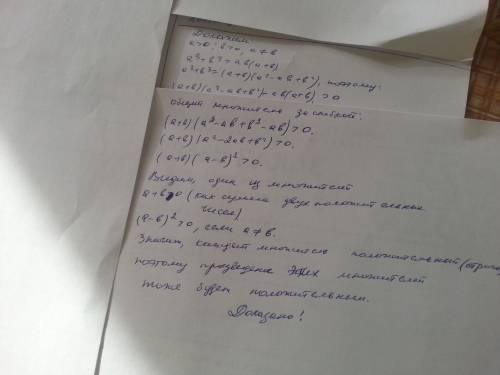 Докажем:
a>0; b>0, a≠b
a³+b³>ab(a+b)
a³+b³=(a+b)(a²-ab+b²), поэтому:
(a+b)(a²-ab+b²)-ab(a+b)>0
общий множитель за скобкой:
(a+b)(a²-ab+b²-ab)>0.
(a+b)(a²-2ab+b²)>0.
(a+b)(a-b)²>0.
Видим, один из множителей
a+b>0 (как сумма двух положительных
чисел)
(a-b)²>0, если a≠b.
Значит, множитель положительный
поэтому произведение этих множителей
тоже будет положительным.
Доказано!